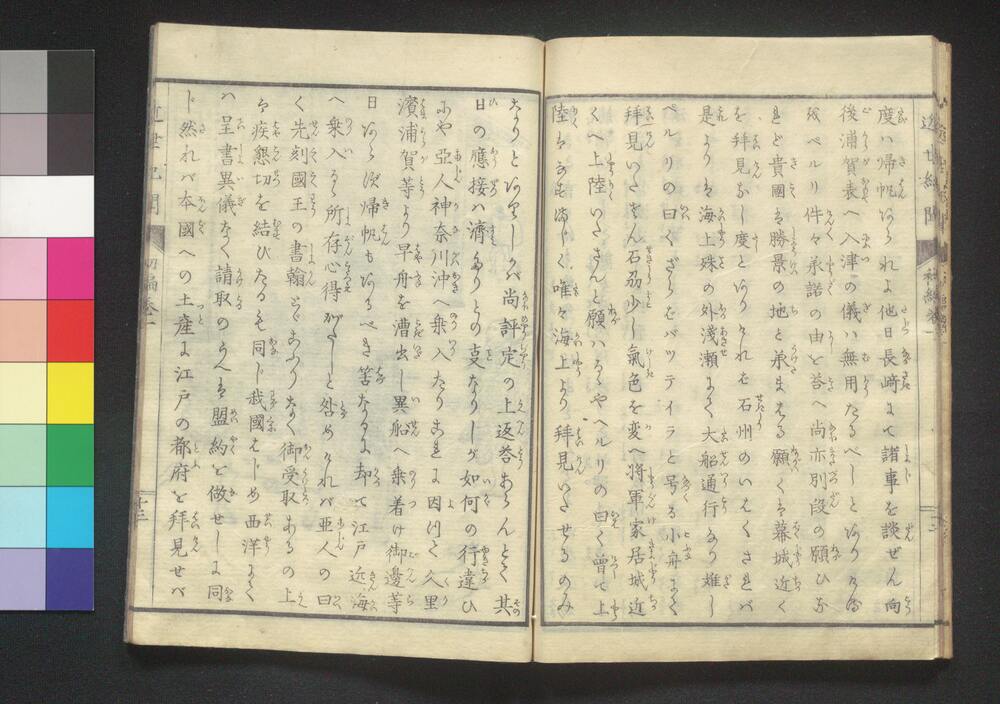 度ハ帰帆ありれよ他日長﨑にて諸事を談ぜん向
後浦賀表へ入津の儀ハ無用たるべしとありける
ペルリ件々承諾の由を荅へ尚亦別段の願ひな
れど貴國は勝景の地と承まはる願くは幕城近く
を拝見なし度とありけれは石州のいはくされバ
是よりは海上殊の外淺瀬にて大船通行なり難し
ペルリの曰くさらばバッテイラと号る小舟にて
拝見いたさん石刕少し氣色を変へ将軍家居城近
くへ上陸いたさんと願ハるゝやペルリの曰く曽て上
陸
唯々海上より拝見いたせるのみ
なりとありしかバ尚評定の上返荅あらんとて其
日の應接ハ濟
との
なりしが如何の行違ひ
にや亞人神奈川沖へ乗入たり
に因つて久里
濱浦賀等より早舟を漕出し異船へ乗着け御邊等
日
帰帆もあるべき筈なるに却て江戸近海
へ乗入らるゝ所存心得がたしと咎めけれバ亜人の曰
く先刻國王の書翰とゞこふりなく御受取あるの上
は
懇切を結びたるも同じ我國をはじめ西洋にて
ハ呈書異儀なく請取のうへは盟約を做せしに同
じ然れバ本國への土産に江戸の都府を拝見せバ
近世紀聞
初編巻一
十二